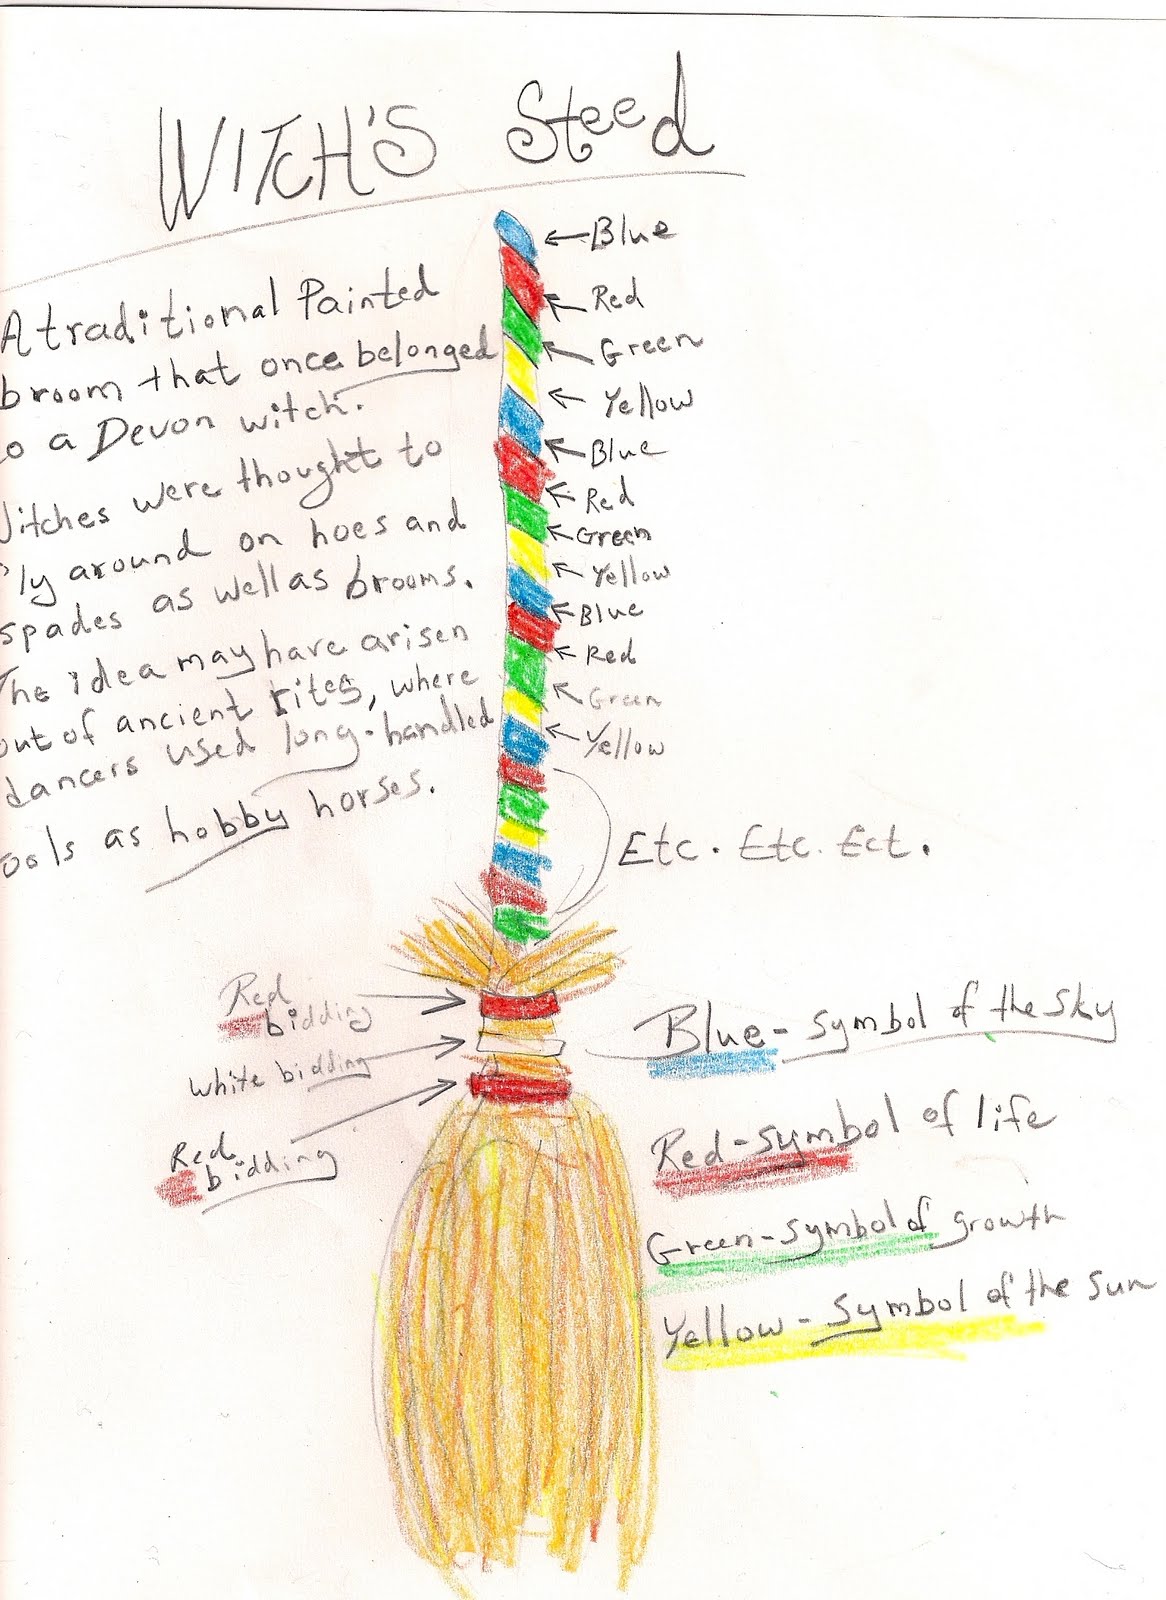 WITCH'S Steed
A traditional Painted
broom that once belonged
o a Devon witch.
Witches were thought to
ly around on hoes and
spades as well as brooms.
The idea may have arisen
out of ancient rites, where
dancers used long-handled
ools as hobby horses.
Blue
Red
Green
Yellow
Blue
Red
Green
Yellow
Blue
Red
Green
Yellow
Etc. Etc. Ect.
Red
bidding
White bidding
Red
bidding
Blue - symbol of the sky
Red - symbol of life
Green - symbol of growth
Yellow - symbol of the sun